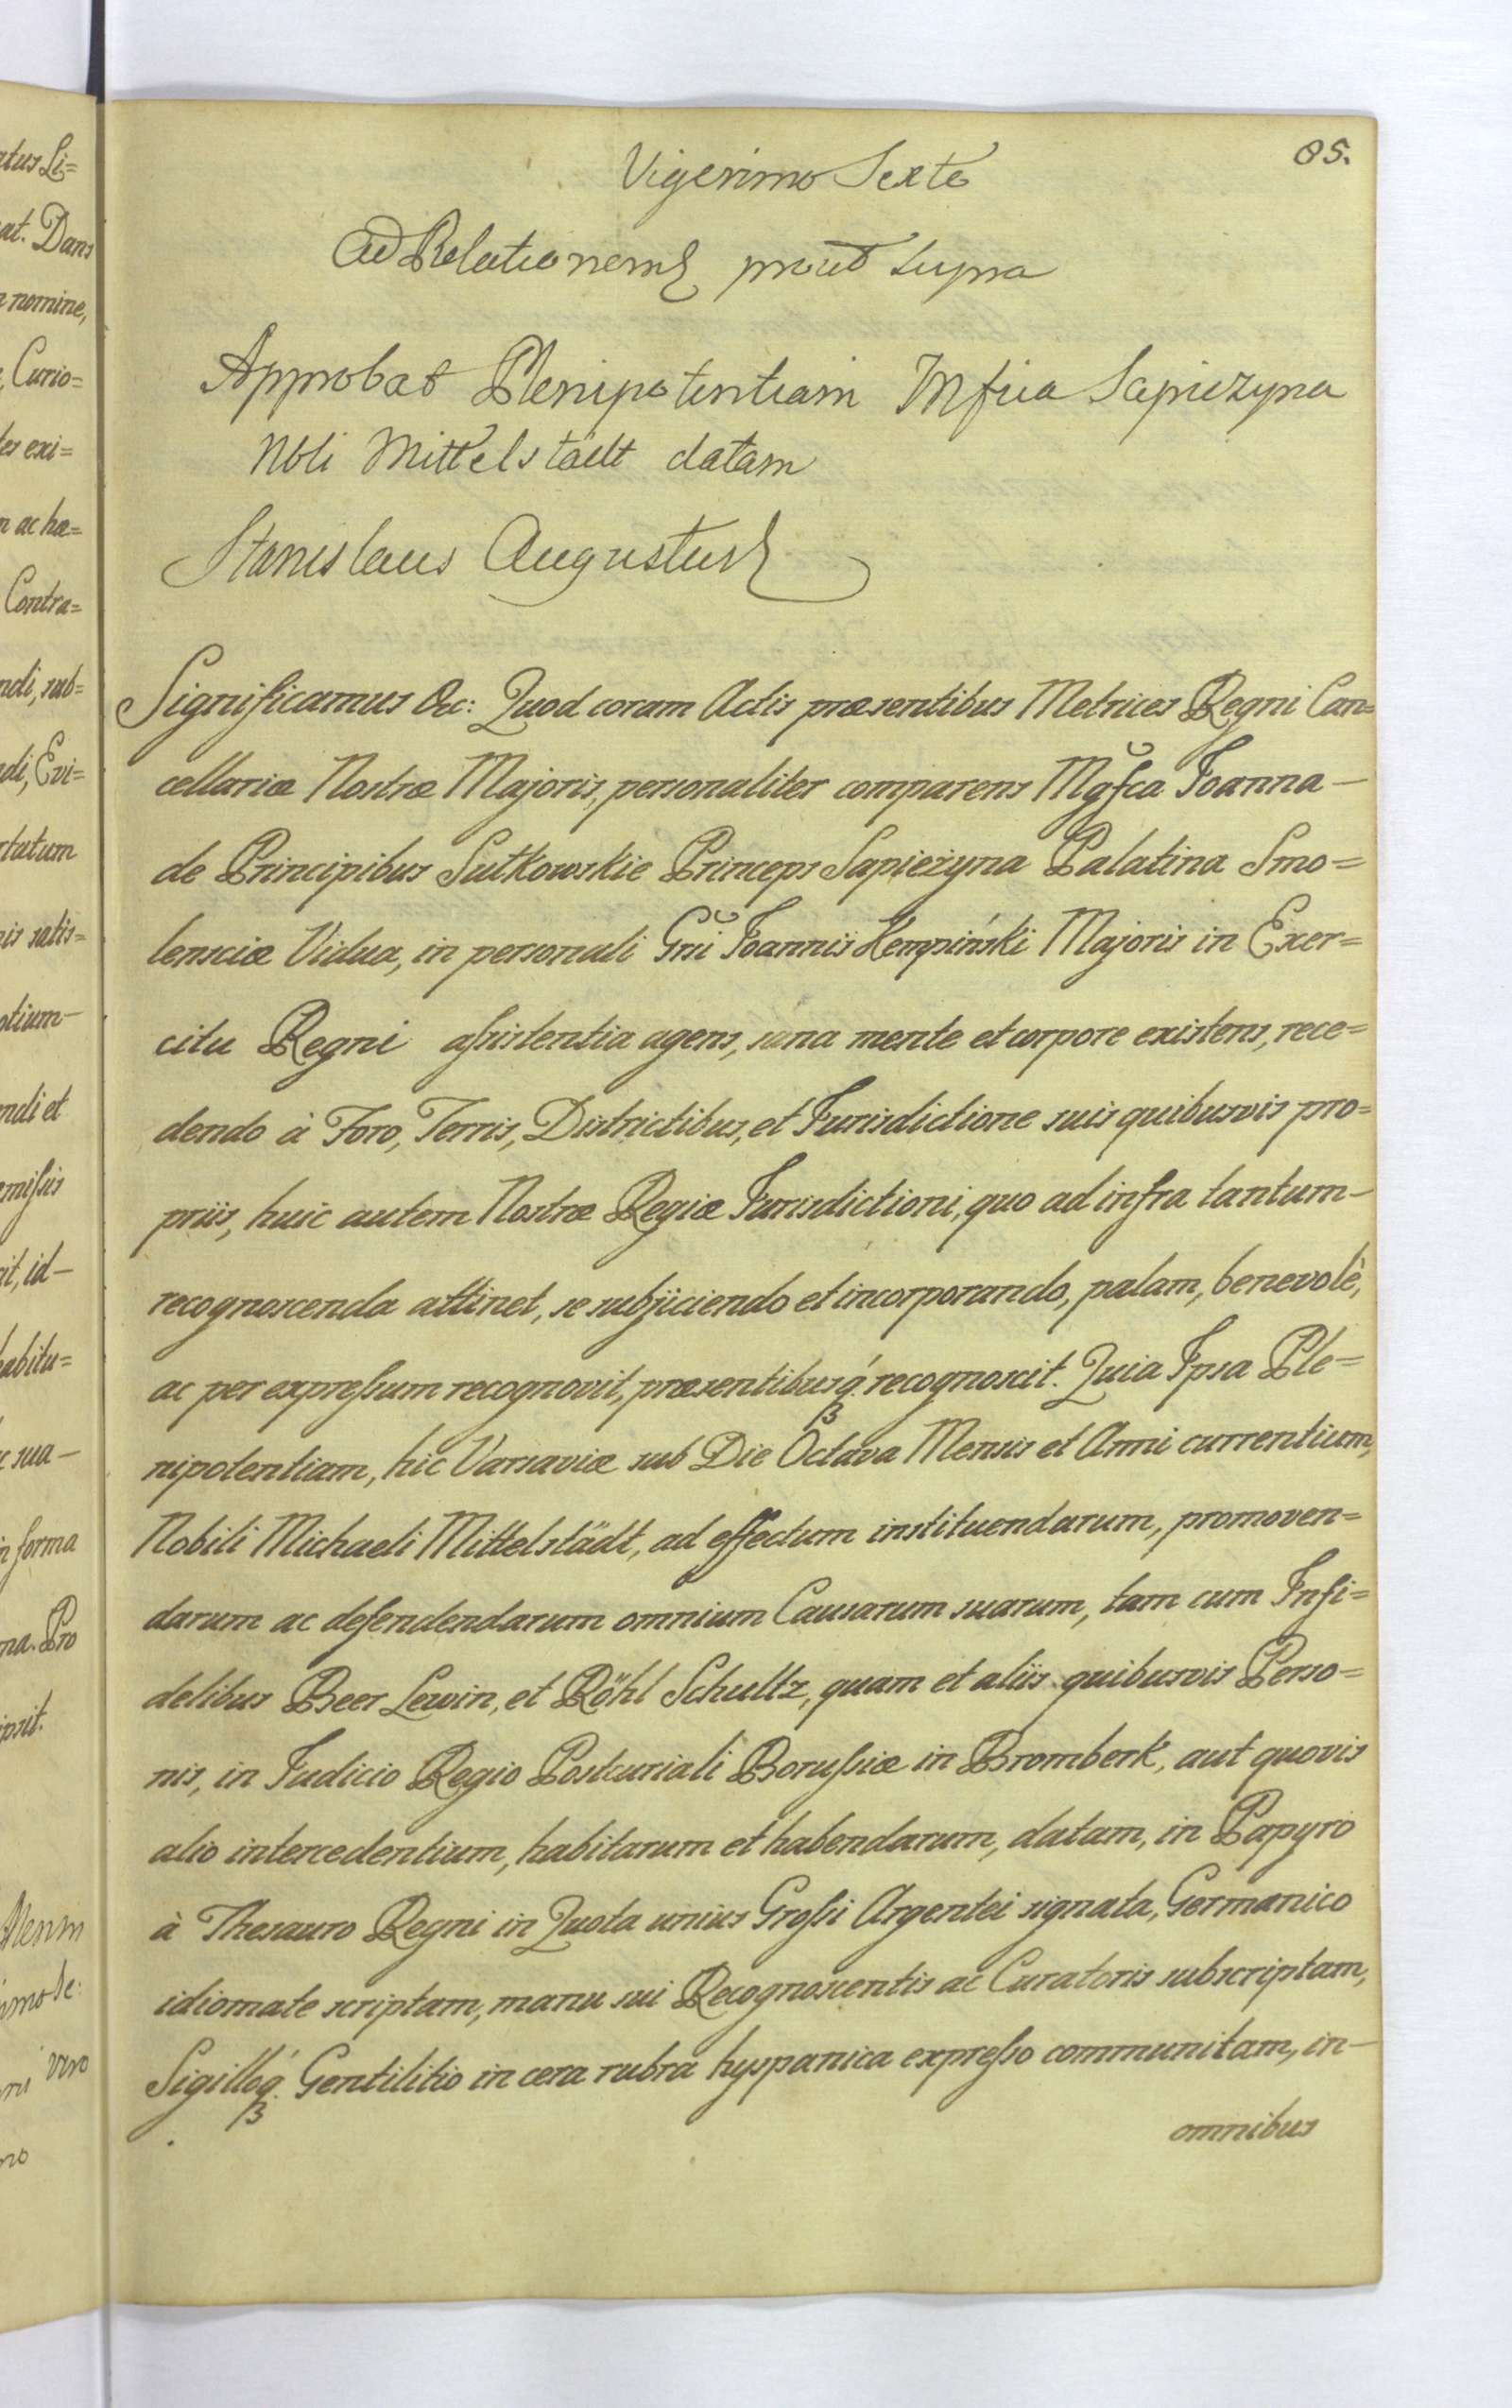 85.
Vigesimo Sexto
Ad Relationem prout supra
Approbat Plenipotentiam Mfica Sapiezyna
Nbli Mittelstädt datam
Stanislaus Augustus
Significamus &c: Quod coram Actis præsentibus Metrices Regni Can=
cellariæ Nostræ Majoris, personaliter comparens Mgfca Joanna—
de Principibus Sułkowskie Princeps Sapieżyna Palatina Smo=
lensciæ Vidua, in personali Gni Joannis Kempiński Majoris in Exer=
citu Regni assistentia agens, sana mente et corpore existens, rece=
dendo à Foro, Terris, Districtibus, et Jurisdictione suis quibusvis pro=
priis, huic autem Nostræ Regiæ Jurisdictioni, quo ad infra tantum—
recognoscenda attinet, se subjiciendo et incorporando, palam, benevolè,
ac per expressum recognovit, præsentibusq́. recognoscit. Quia Ipsa Ple=
nipotentiam, hic Varsaviæ sub Die Octava Mensis et Anni currentium,
Nobili Michaeli Mittelstädt, ad effectum instituendarum, promoven=
darum ac defendendarum omnium Causarum suarum, tam cum Infi=
delibus Beer Lewin, et Röhl Schultz, quam et aliis quibusvis Perso=
nis, in Judicio Regio Postcuriali Borussiæ in Bromberk, aut quovis
alio intercedentium, habitarum et habendarum, datam, in Papyro
à Thesauro Regni in Quota unius Grossi Argentei signata, Germanico
idiomate scriptam, manu sui Recognoscentis ac Curatoris subscriptam,
Sigilloq́. Gentilitio in cera rubra hyspanica expresso communitam, in—
omnibus
atus Li=
at. Dans
nomine,
Curio=
es exi=
ac hæ=
Contra=
ndi, sub=
di, Evi=
tatum
is satis=
otium—
ndi et
missis
it, id—
habitu=
sua—
in forma
na. Pro
psit.
vero